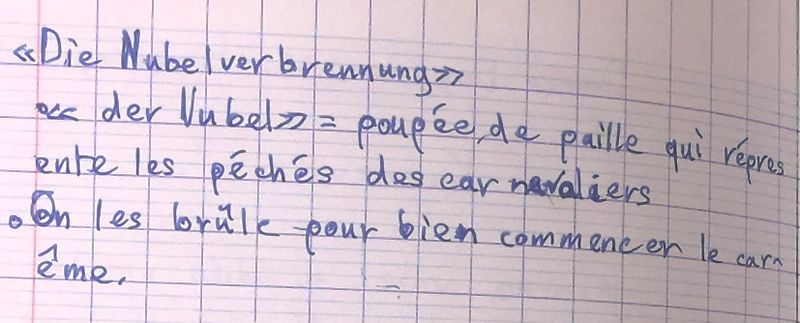 «Die Nubelverbrennung»
«der Nubel» = poupée de paille qui répres
ente les péchés des carnavaliers
. On les brûle pour bien commencer le car
ême.